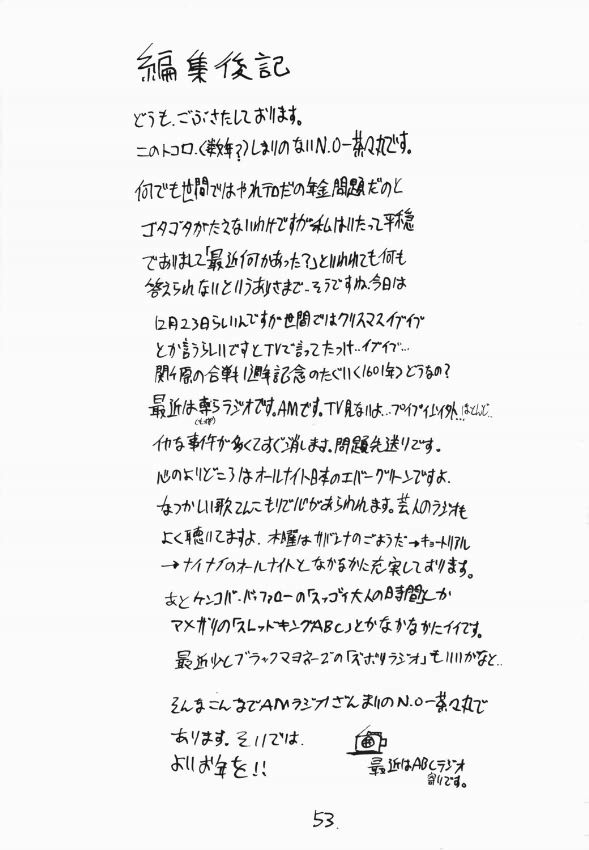 編集後記
どうも、ごぶさたしております。
このトコロ、(数年?)しまりのないN.O一茶々丸です。
何でも世間ではやれテロだの年金問題だのと
ゴタゴタがたえないわけですが私はいたって平穏
でありまして「最近何かあった?」といわれても何も
答えられないというありさまで‥そうですね、今日は
12月23日らしいんですが世間ではクリスマスイブイブ
とか言うらしいですとTVで言ってたっけ‥イブイブ…
関ヶ原の合戦1周年記念のたぐい(1601年)どうなの?
最近は専らラジオです。AMです。TV見ないよ…ブイブイ以外…ほとんど…
(もっぱら)
イヤな事件が多くてすぐ消します。問題先送りです。
心のよりどころはオールナイト日本のエバーグリーンですよ、
なつかしい歌てんこもりで心があらわれます。芸人のラジオも
よく聴いてますよ、木曜はサバンナのごようだ→キョートリアル
→ナイナイのオールナイトとなかなかに充実しております。
あとケンコバ・バッファローの「スッゴイ大人の時間」とか
アメザリの「スレッドキングABC」とかなかなかにイイです。
最近少しブラックマヨネーズの「ズボリラジオ」もいいかなと‥
そんなこんなでAMラジオざんまいのN.O一茶々丸で
あります。それでは、
よいお年を!!
最近はABCラジオ
寄りです。
53.